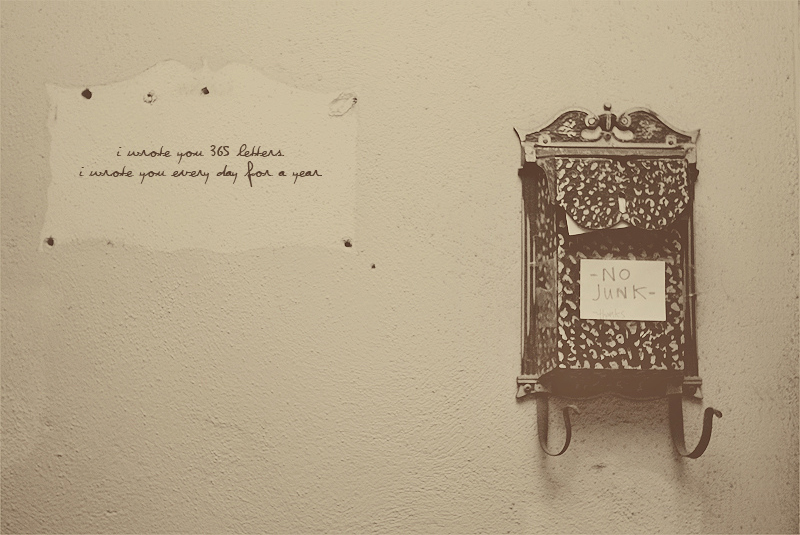 i wrote you 365 letters
i wrote you every day for a year
-NO
JUNK-